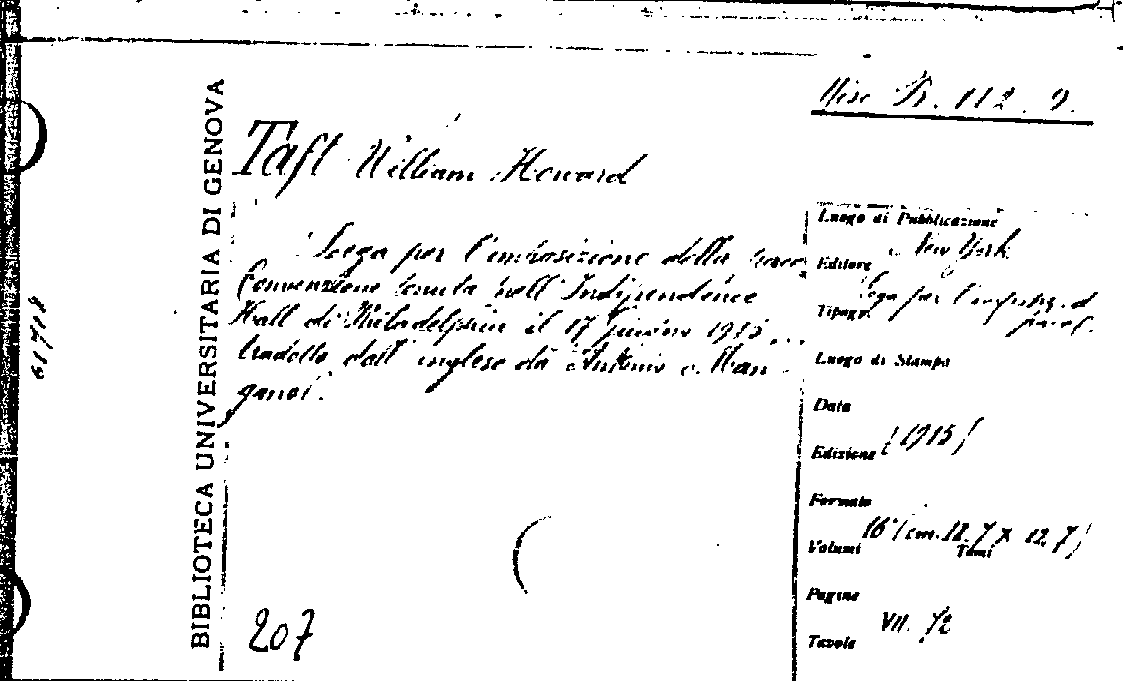 Misc. B. 112. 9.
Taft William Howard
Lega per l'imposizione della pace
Convenzione tenuta nell'Independence
Hall di Philadelphia il 17 giugno 1915...
tradotto dall'inglese da Antonio Man
ganol.
207
BIBLIOTECA UNIVERSITARIA DI GENOVA
61718
Luogo di Pubblicazione
New York
Editore
Lega per l'imposiz. d
Tipogr.
Luogo di Stampa
Data
[1915]
Edizione
Formato
16° (cm. 18,7 x 12,7)
Volumi Tomi
Pagine
VII. 72
Tavole